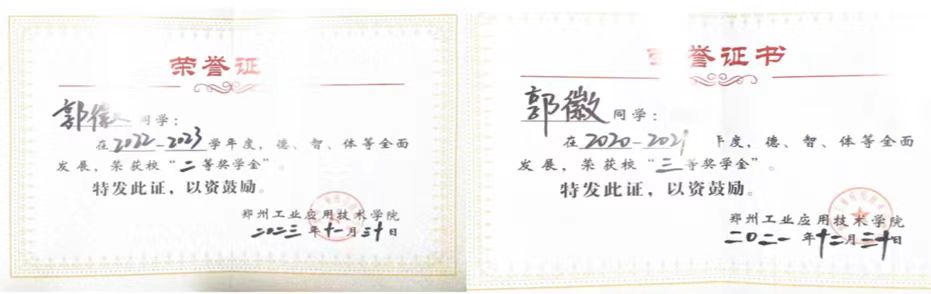 荣誉证
郭徽同学：
在2022-2023学年度，德、智、体等全面
发展，荣获校“二等奖学金”。
特发此证，以资鼓励。
郑州工业应用技术学院
二〇二三年十一月三十日
誉证书
郭徽同学：
在2020-2021年度，德、智、体等全面
发展，荣获校“三等奖学金”。
特发此证，以资鼓励。
郑州工业应用技术学院
二〇二一年十二月二十日